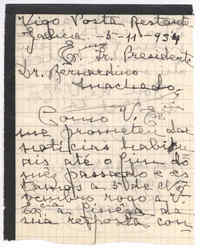 Vigo Posta Restante
Galicia - 5-11-934
Exmo Sr. Presidente
Dr. Bernardino
Machado,
Como V. Ex.
me prometeu dar
noticias habitu
ais até o fim do
mez passado e es
tamos a 5 de
vembro rogo a V.
a fineza da
sua reposta com